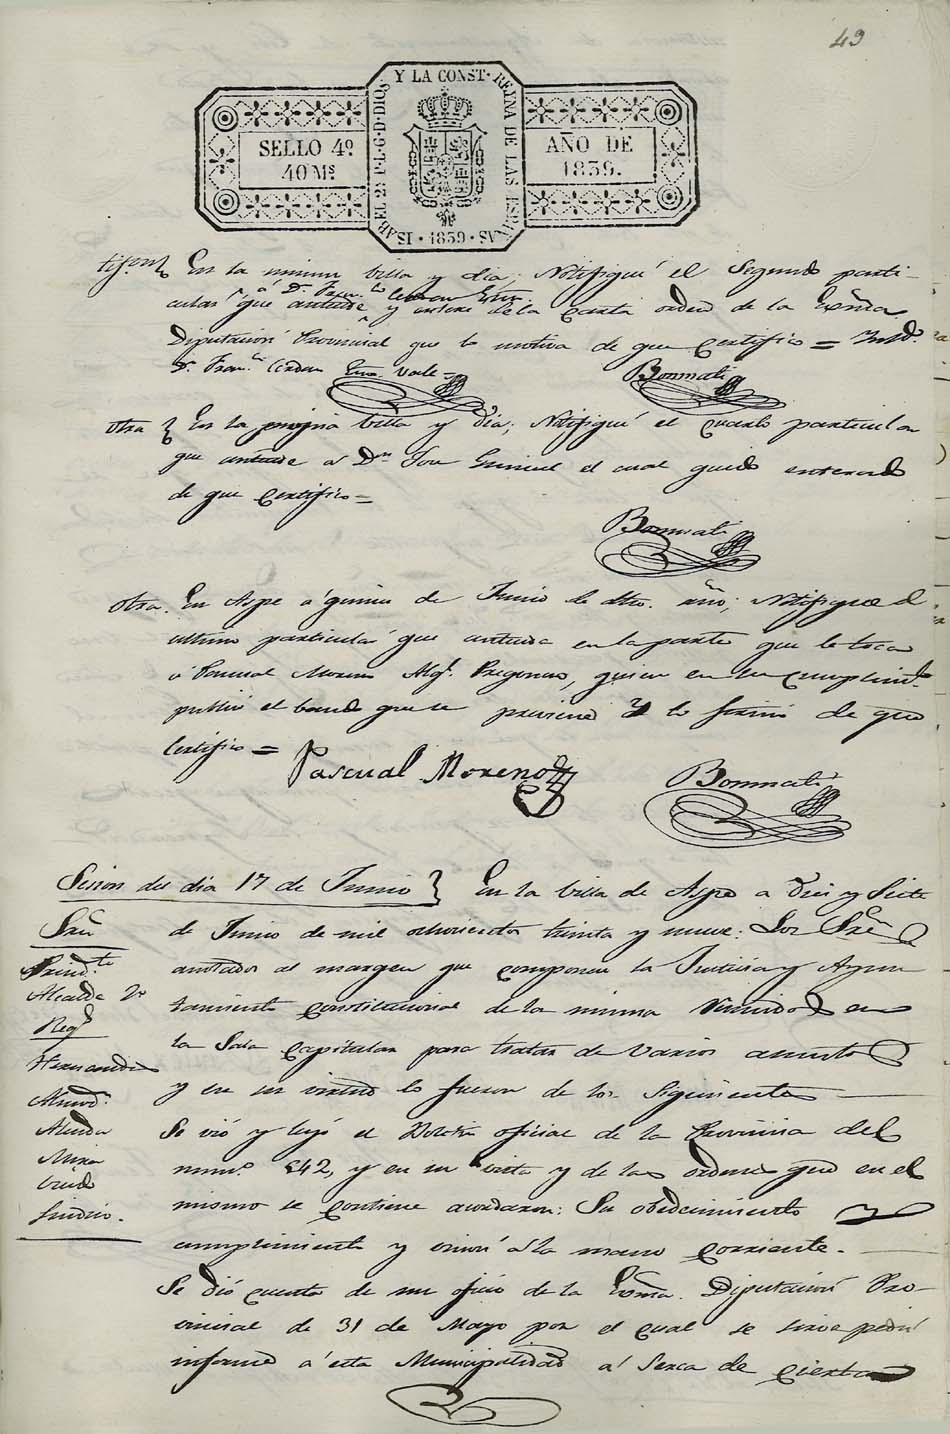 49
ISABEL 2ª P. L. G. D. DIOS Y LA CONST. REYNA DE LAS ESPAÑAS
SELLO 4º
40 Ms
AÑO DE
1839.
· 1839 ·
En la misma Villa y dia: Notifiqué el Segundo parti-
á Dn. Fran.co
cular que antecede, y de la Carta orden de la Exma
Diputación Provincial que lo motiva de que Certifico =
Dn. Fran.co Cerdan
Bonmati
otra } En la propia Villa y Dia; Notifiqué el Cuarto particular
que antecede á Dn. el cual quedó enterado
de que Certifico =
Bonmati
otra. En Aspe á quince de Junio de dho. año; Notifiqué el
ultimo particular que antecede en la parte que le toca
á Pascual Moreno Alg.l Pregonero, quien en su cumplim.to
publicó el bando que se previene y lo firmó de que
Certifico =
Pascual Moreno
Bonmati
Sesion del dia 17 de Junio } En la Villa de Aspe a Diez y Siete
de Junio de mil ochocientos treinta y nueve: Los Sres
anotados al margen que componen la Justicia y Ayun
tamiento constitucional de la misma reunidos en
la Sala Capitular para tratar de varios asuntos
y en su virtud lo fueron de los Siguientes
Sres
Presid.te
Alcalde 2º
Reg.s
Hernandez
Almod.r
Alenda
Mira
Sindico.
Se vió y leyó el Boletin oficial de la Provincia del
num.º 542, y en su vista y de las ordenes que en el
mismo se contiene acordaron: Su obedecimiento
cumplimiento y union á la mano corriente.
Se dió cuenta de un oficio de la Exma. Diputacion Pro-
vincial de 31 de Mayo por el cual se sirve pedir
informe á esta Municipalidad á serca de cierta